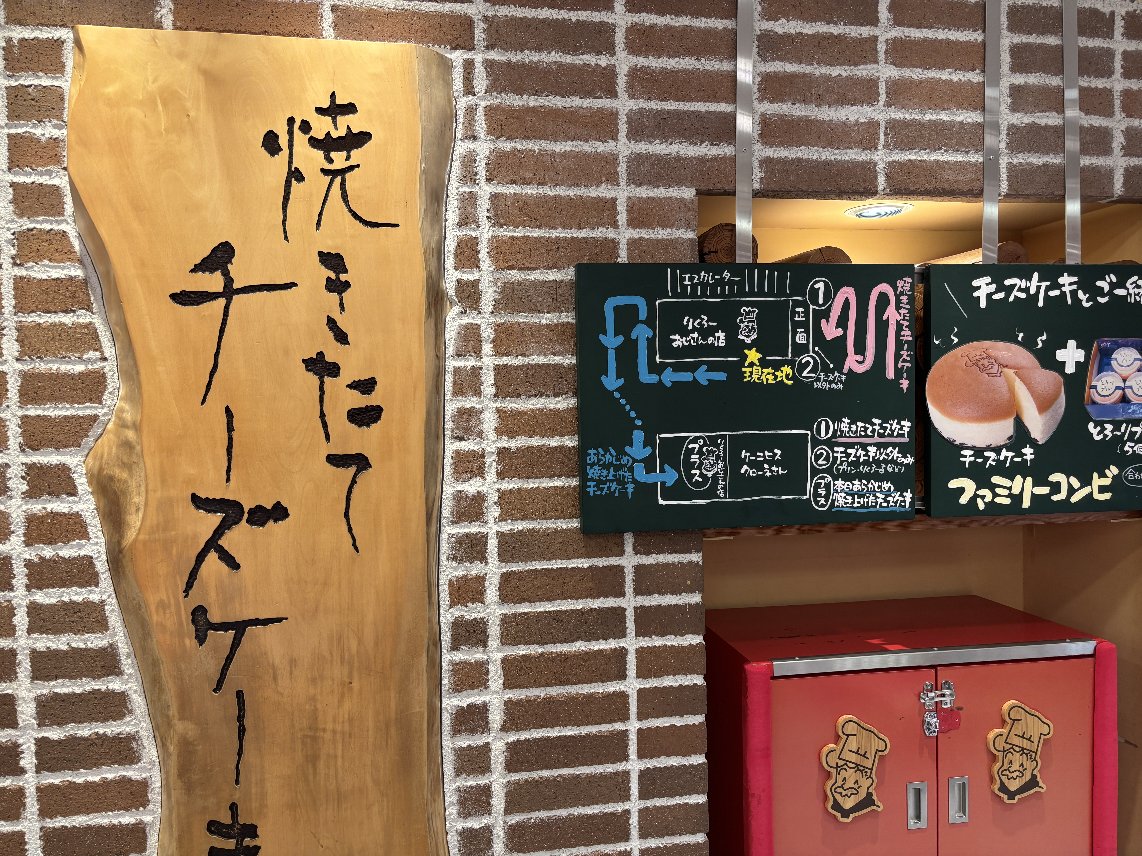 焼きたて
チーズケーキ
エスカレーター
りくろー
おじさんの店
正面
現在地
①
②
チーズケーキ
以外のみ
焼きたてチーズケーキ
プラス
ケーニヒス
クローネさん
あらかじめ
焼き上げた
チーズケーキ
①焼きたてチーズケーキ
②チーズケーキ以外のみ
プラス 本日あらかじめ
焼き上げたチーズケーキ
チーズケーキとご一緒
チーズケーキ
+
とろ〜りプ
ファミリーコンビ